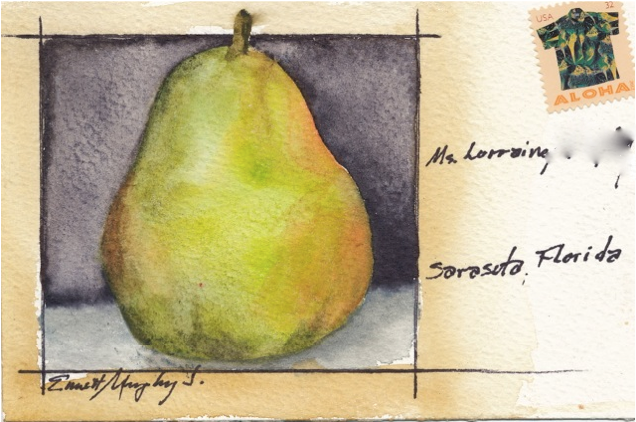 USA 32
ALOHA
Ms. Lorraine
Sarasota, Florida
Emmett Murphy J.